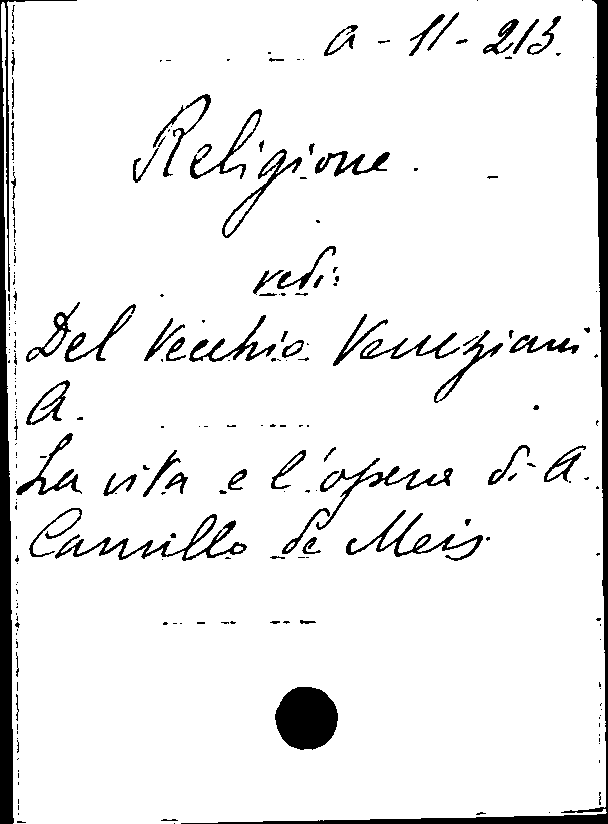 a-11-213.
Religione.
vedi:
Del Vecchio Veneziani
A.
La vita e l'opera di A.
Camillo de Meis